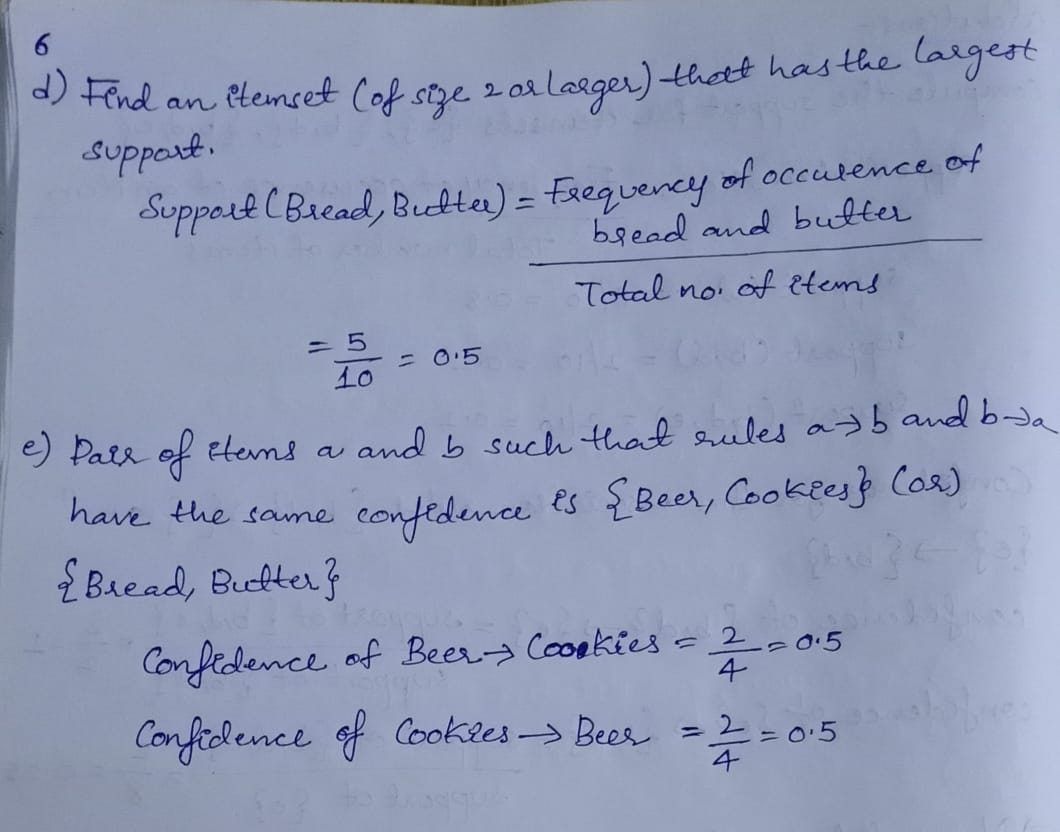 6
d) Find an itemset (of size 2 or larger) that has the largest
support.
Support (Bread, Butter) = Frequency of occurence of
bread and butter
Total no. of items
= 5/10 = 0.5
e) Pair of items a and b such that rules a→b and b→a
have the same confidence is {Beer, Cookies} (or)
{Bread, Butter}
Confidence of Beer → Coookies = 2/4 = 0.5
Confidence of Cookies → Beer = 2/4 = 0.5